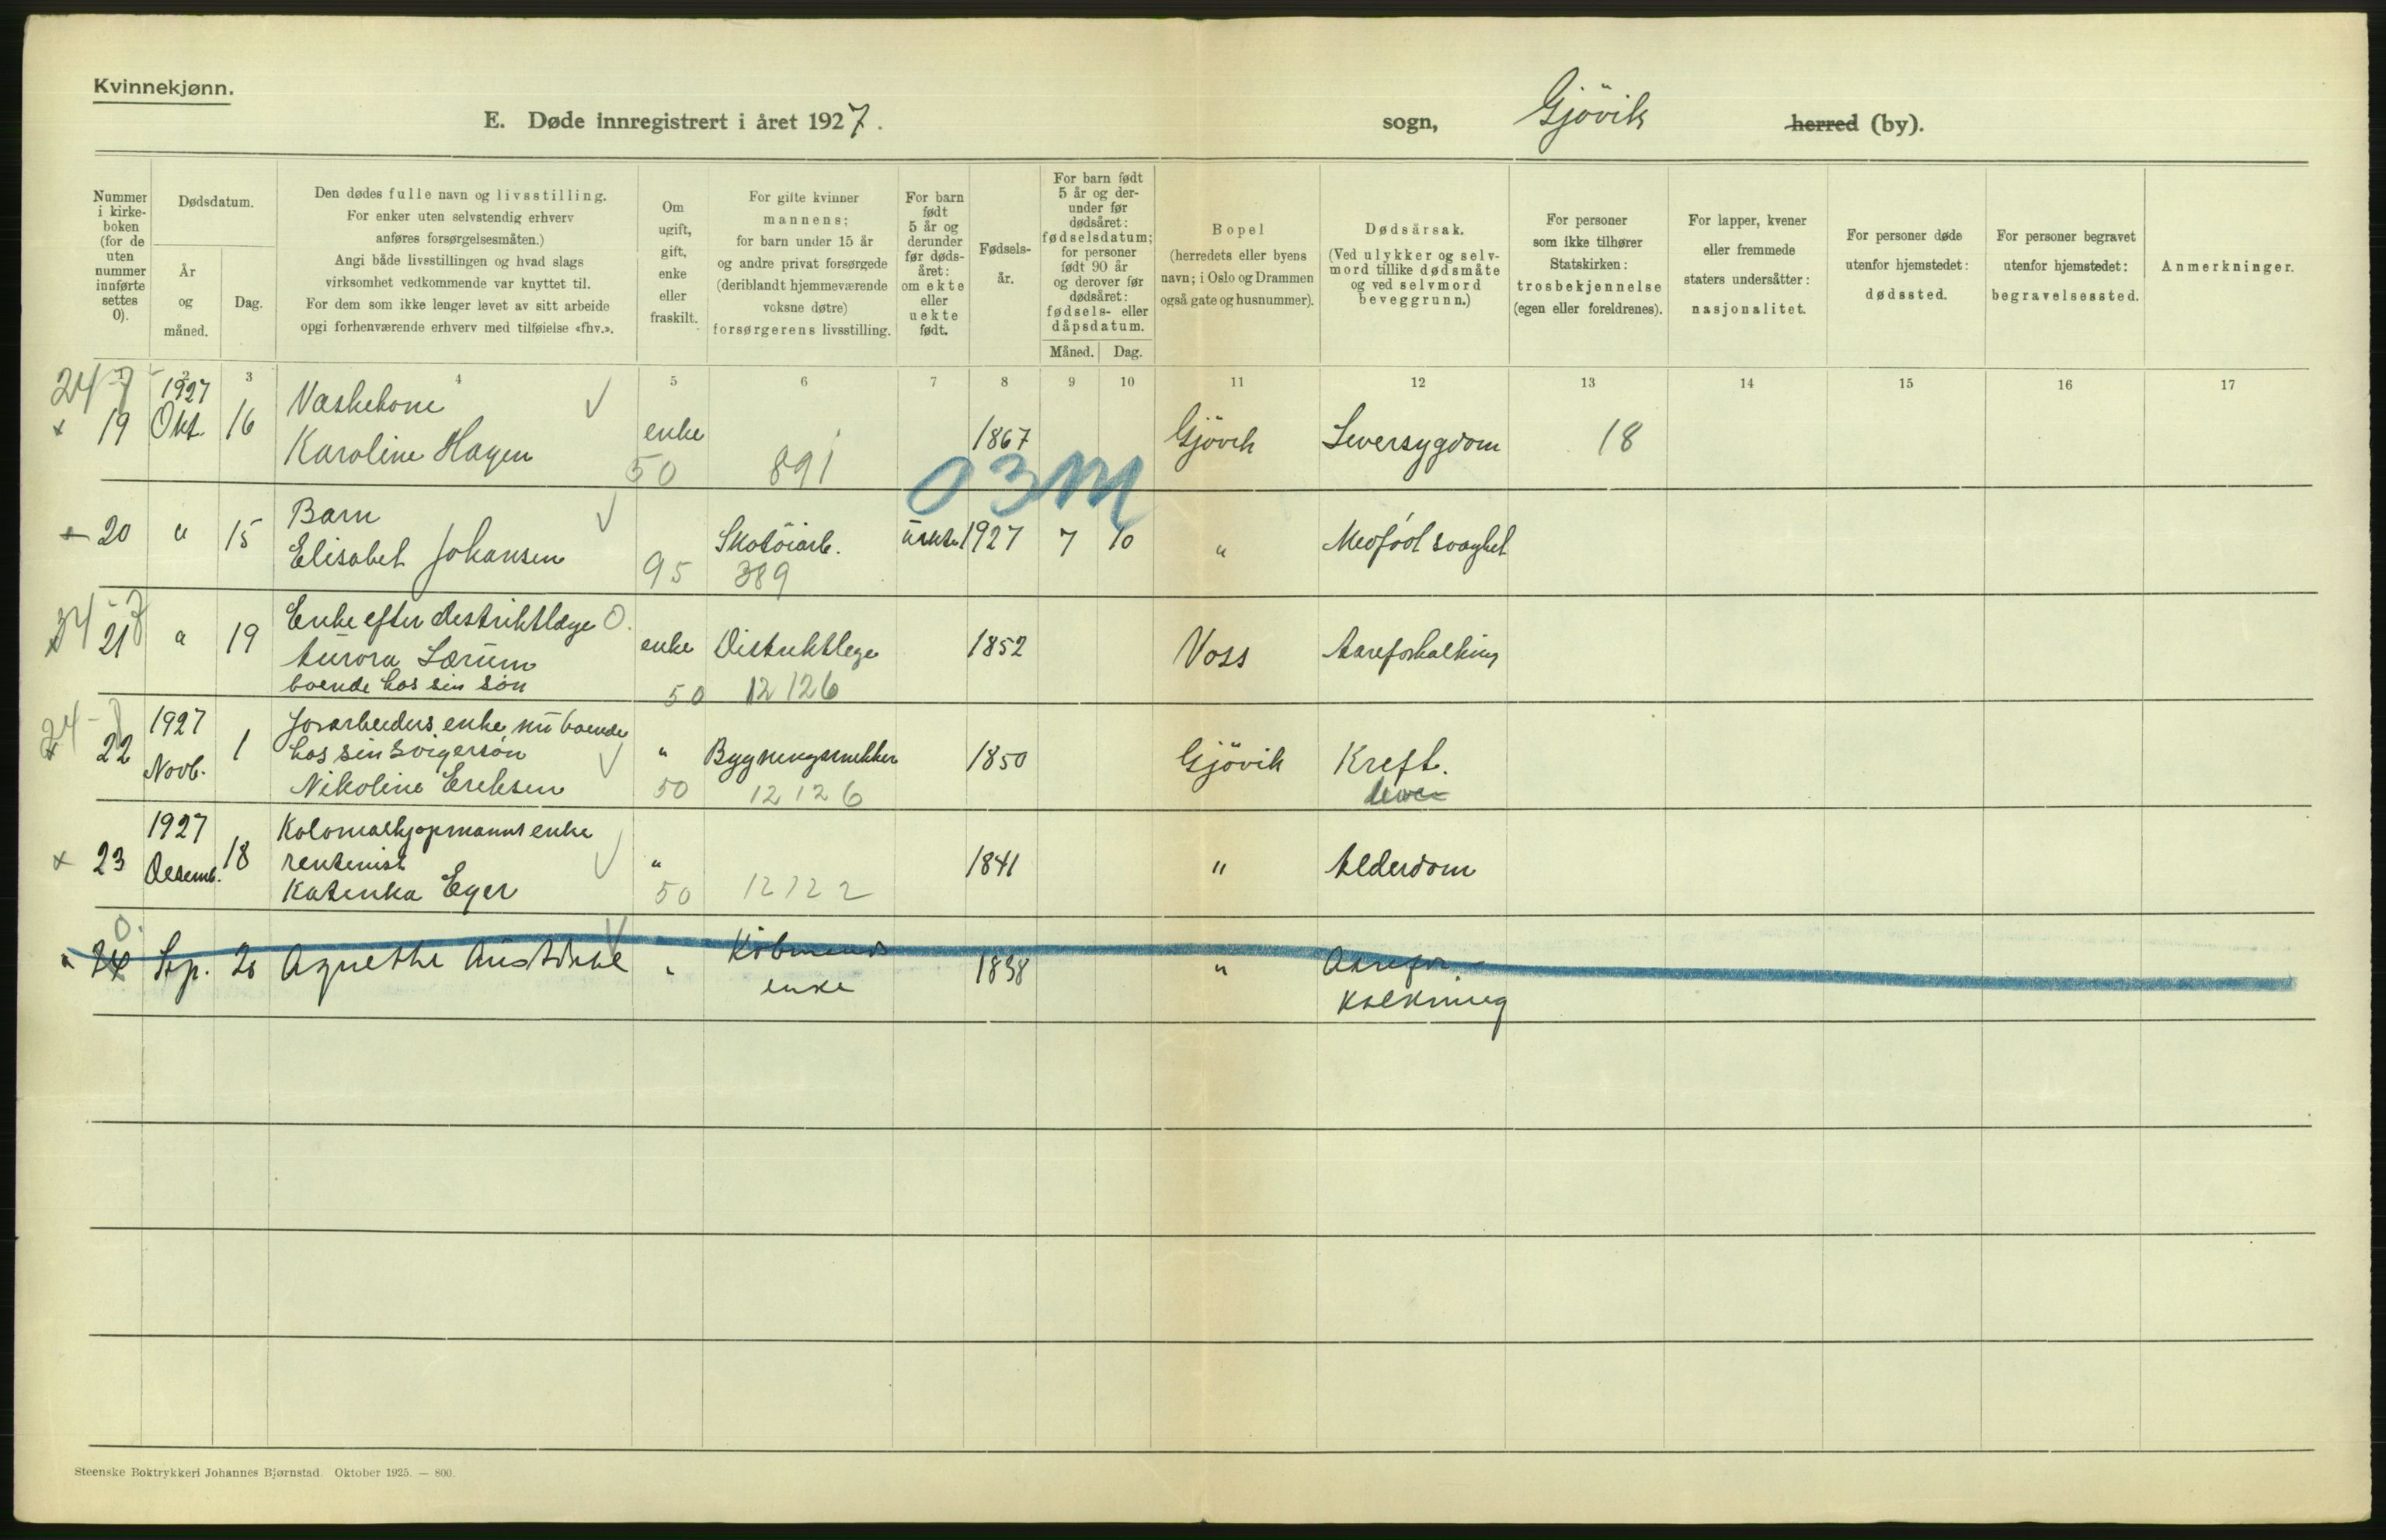 Kvinnekjønn.
E. Døde innregistrert i året 1927. sogn, Gjövik herred (by).
Nummer i kirke-boken (for de uten nummer innførte settes 0).
Dødsdatum.
År og måned.
Dag.
Den dødes fulle navn og livsstilling.
For enker uten selvstendig erhverv
anføres forsørgelsesmåten.)
Angi både livsstillingen og hvad slags
virksomhet vedkommende var knyttet til.
For dem som ikke lenger levet av sitt arbeide
opgi forhenværende erhverv med tilføielse «fhv.».
Om ugift, gift, enke eller fraskilt.
For gifte kvinner
mannens;
for barn under 15 år
og andre privat forsørgede
(deriblandt hjemmeværende
voksne døtre)
forsørgerens livsstilling.
For barn født 5 år og derunder før døds-året: om ekte eller uekte født.
Fødsels-år.
For barn født 5 år og der-under før dødsåret: fødselsdatum; for personer født 90 år og derover før dødsåret: fødsels- eller dåpsdatum.
Måned. Dag.
Bopel
(herredets eller byens
navn; i Oslo og Drammen
også gate og husnummer).
Dødsårsak.
(Ved ulykker og selv-
mord tillike dødsmåte
og ved selvmord
beveggrunn.)
For personer
som ikke tilhører
Statskirken:
trosbekjennelse
(egen eller foreldrenes).
For lapper, kvener
eller fremmede
staters undersåtter:
nasjonalitet.
For personer døde
utenfor hjemstedet:
dødssted.
For personer begravet
utenfor hjemstedet:
begravelsessted.
Anmerkninger.
1 2 3 4 5 6 7 8 9 10 11 12 13 14 15 16 17
24-7
x 19 1927 Okt. 16 Vaskekone
Karoline Hagen enke 50 891 1867 Gjövik Leversygdom 18
03M
20 " 15 Barn
Elisabet Johansen 95 Skotöiarb. 389 uekte 1927 7 10 " Medfödt svaghet
21 " 19 Enke efter distriktslæge O.
Aurora Lærum
boende hos sin sön enke 50 Distriktslege 12126 1852 Voss Aareforkalkning
22 1927 Novb. 1 Jordarbeiders enke, nu boende
hos sin svigersön
Nikoline Eriksen " 50 Bygningsnekker 12126 1850 Gjövik Kreft.
lever
x 23 1927 Desemb. 18 Kolonialkjøpmanns enke
rentenist
Katinka Eger " 50 12122 1841 " Alderdom
0.
24 Sep. 20 Agnethe " Köbmands
enke 1838 " Aarefor-
kalkning
Steenske Boktrykkeri Johannes Bjørnstad. Oktober 1925. — 800.